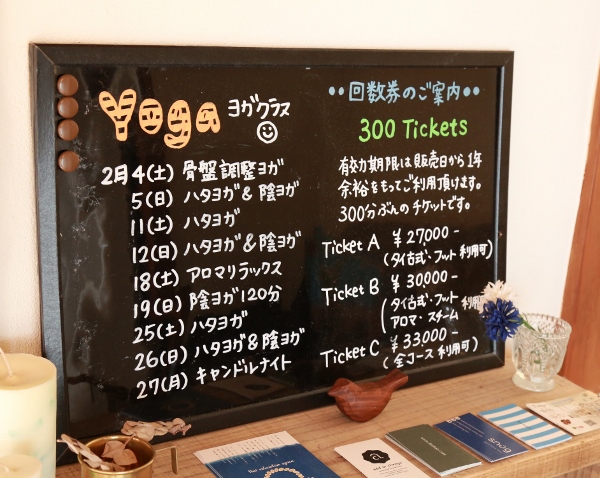 Yoga ヨガクラス
2月4(土) 骨盤調整ヨガ
5(日) ハタヨガ&陰ヨガ
11(土) ハタヨガ
12(日) ハタヨガ&陰ヨガ
18(土) アロマリラックス
19(日) 陰ヨガ120分
25(土) ハタヨガ
26(日) ハタヨガ&陰ヨガ
27(月) キャンドルナイト
••回数券のご案内••
300 Tickets
有効期限は販売日から1年
余裕をもってご利用頂けます。
300分ぶんのチケットです。
Ticket A ¥27,000-
(タイ古式・フット利用可)
Ticket B ¥30,000-
(タイ古式・フット利用
アロマ・スチーム
Ticket C ¥33,000-
(全コース利用可)